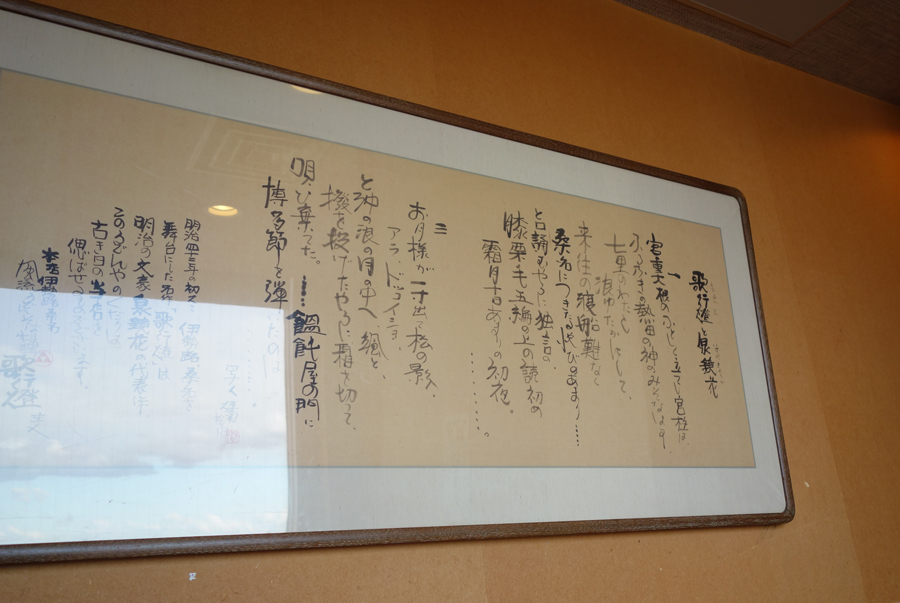 歌行燈と泉鏡花
一
宮重大根のふとしく立てし宮柱は、
ふろふきの熱田の神のみそなはす、
七里のわたし
浪ゆたかにして、
来往の渡船難なく
桑名につきたる悦びのあまり……
と口誦むやうに独言の、
膝栗毛五編の上の読初め
霜月十日あまりの初夜。
三
お月様が一寸出て松の影、
アラ、ドッコイショ、
と沖の浪の月の中へ颯と、
撥を投げたやうに霜を切って、
唄ひ棄てた。……饂飩屋の門に
博多節を弾いたのは
明治四十三年の初冬 伊勢路の桑名を
舞台にした名作「歌行燈」は
明治の文豪泉鏡花の代表作
このうどんやの
古き日の
偲ばせて